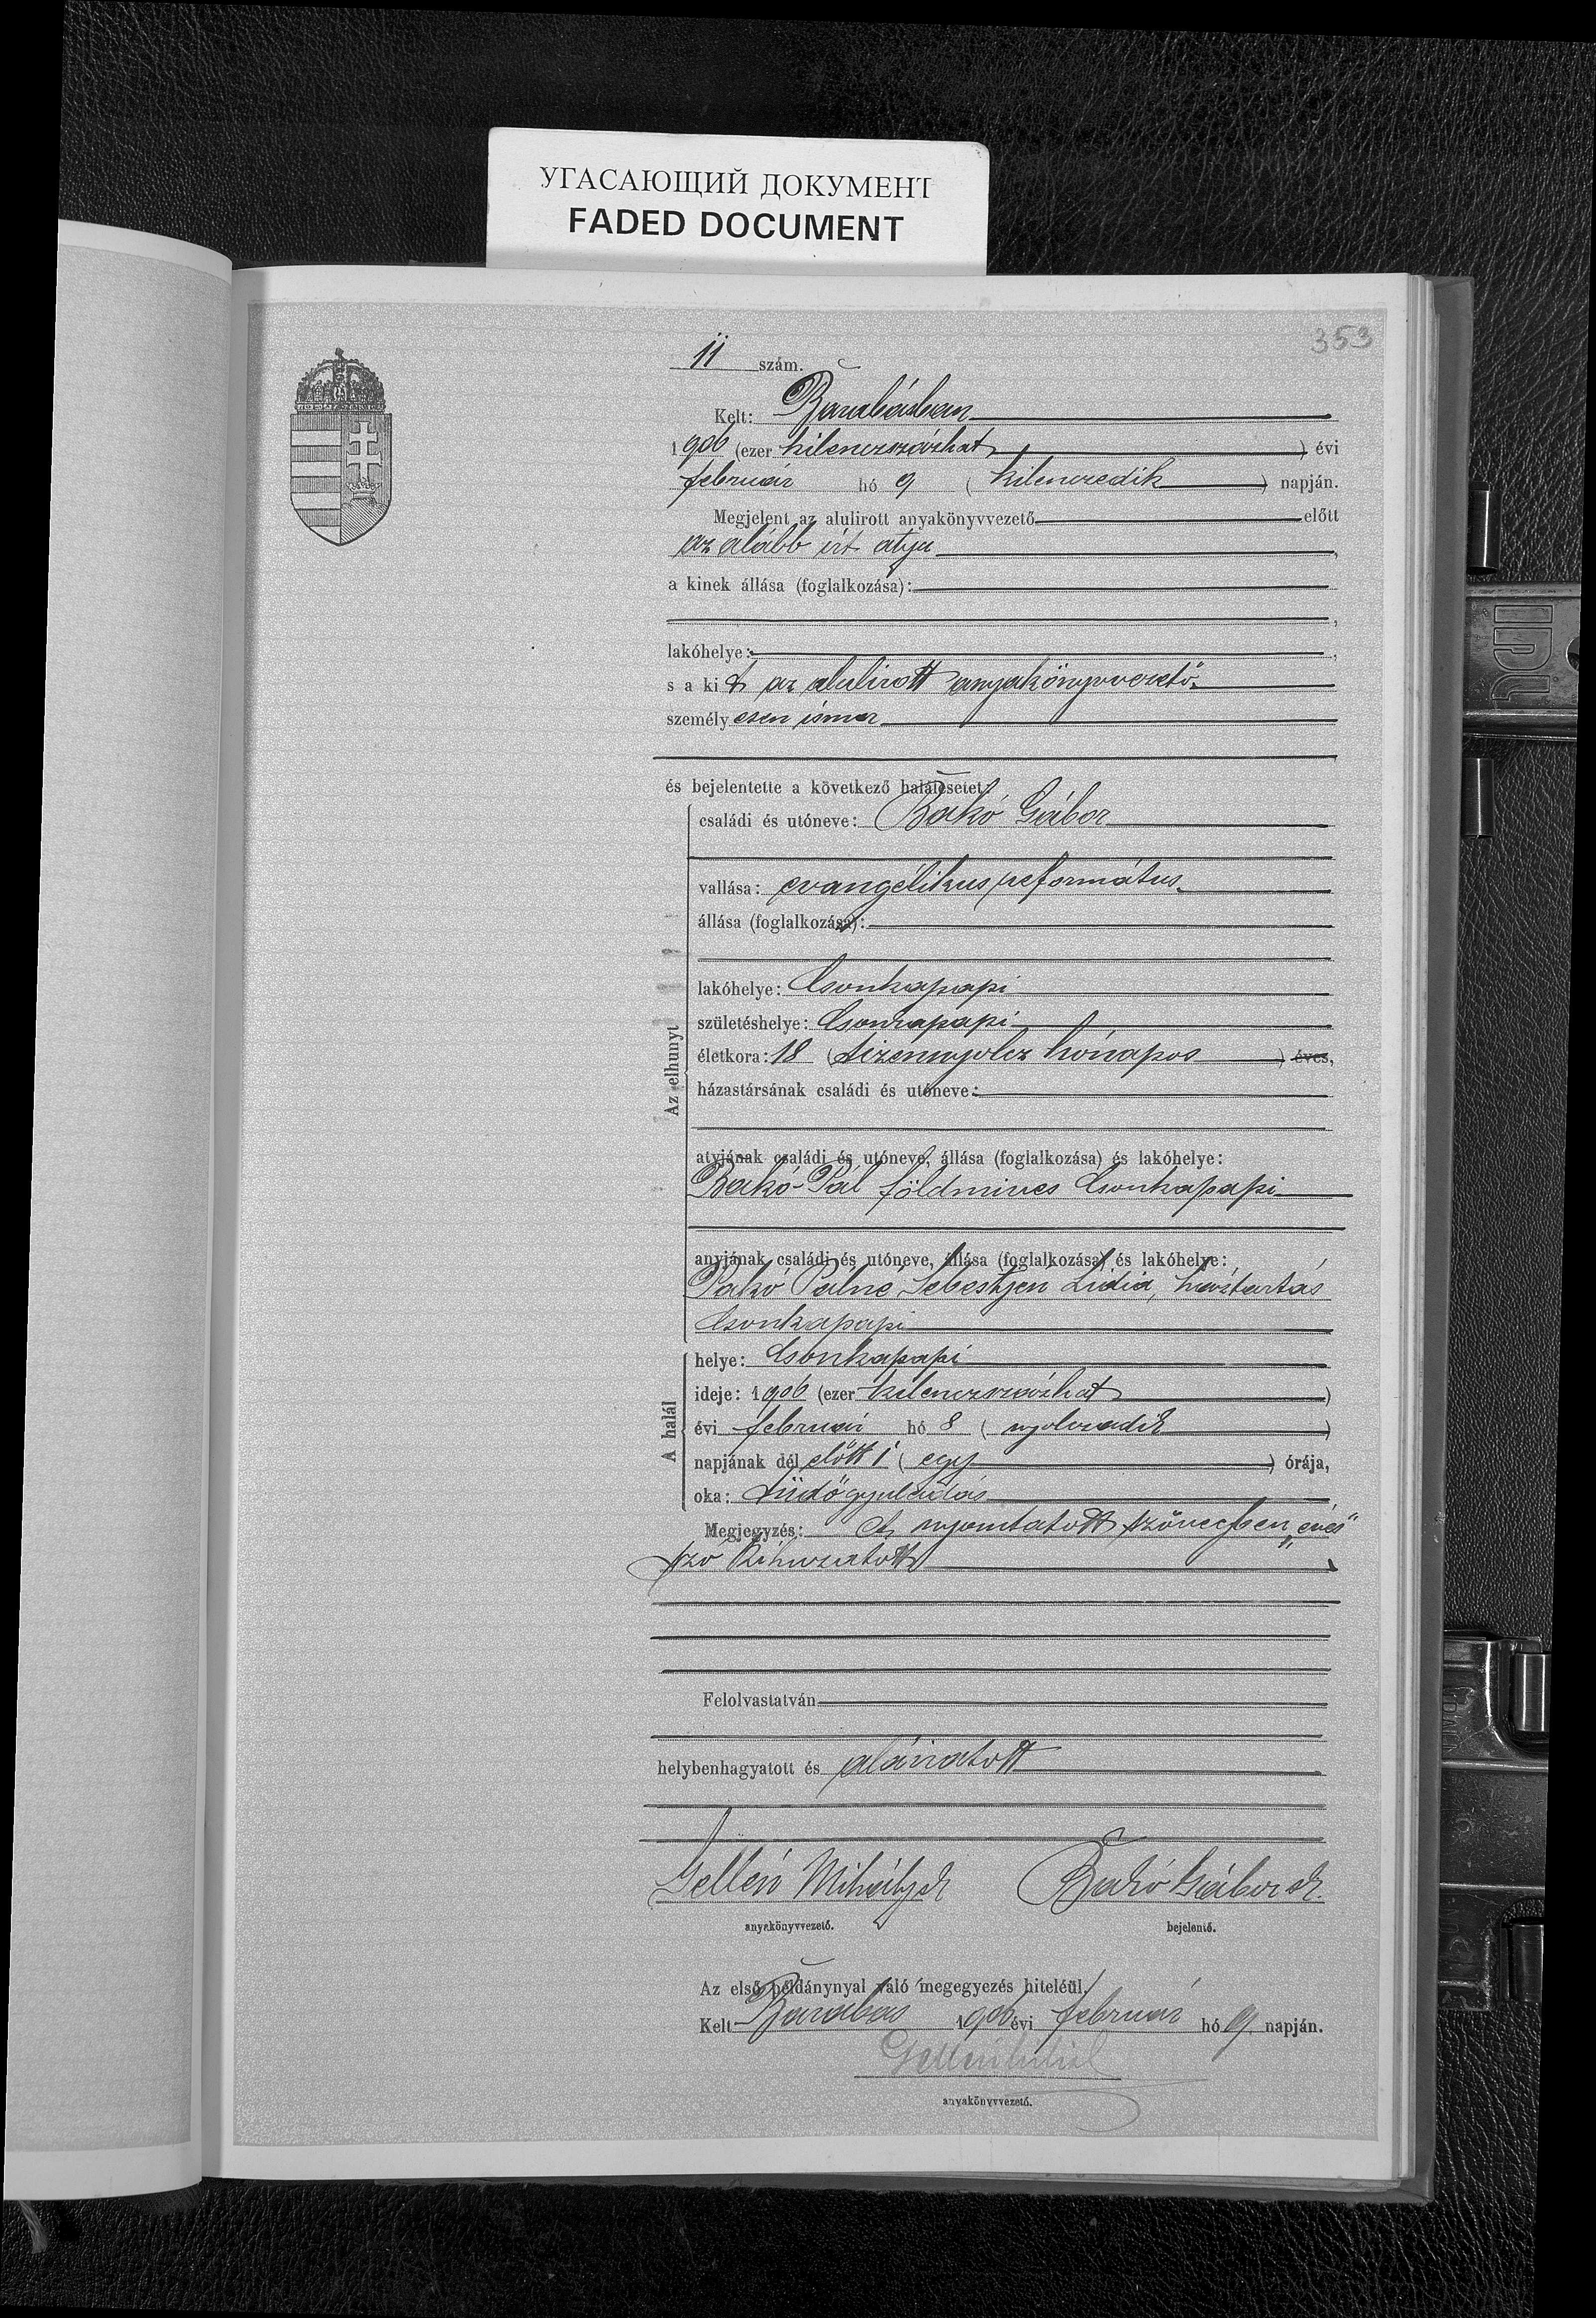 УГАСАЮЩИЙ ДОКУМЕНТ
FADED DOCUMENT
353
11 szám.
Kelt: Barabásban
1906 (ezer kilenczszázhat) évi
február hó 9 (kilenczedik) napján.
Megjelent az alulirott anyakönyvvezető előtt
az alább irt atyja,
a kinek állása (foglalkozása):
lakóhelye:
s a kit az alulirott anyakönyvvezető
személyesen ismer
és bejelentette a következő halálesetet:
Az elhunyt
családi és utóneve: Bakó Gábor
vallása: evangélikus református
állása (foglalkozása):
lakóhelye: Csonkapapi
születéshelye: Csonkapapi
életkora: 18 (tizennyolcz hónapos) éves,
házastársának családi és utóneve:
atyjának családi és utóneve, állása (foglalkozása) és lakóhelye:
Bakó Pál földmives Csonkapapi
anyjának családi és utóneve, állása (foglalkozása) és lakóhelye:
Bakó Pálné Sebestyen Lidia, háztartás
Csonkapapi
A halál
helye: Csonkapapi
ideje: 1906 (ezer kilenczszázhat)
évi február hó 8 (nyolczadik)
napjának dél előtt 1 (egy) órája,
oka: tüdőgyuladás
Megjegyzés: A nyomtatott szövegben „éves"
szó kihuzatott
Felolvastatván
helybenhagyatott és aláiratott
Gellén Mihály sk Bakó Gábor sk.
anyakönyvvezető. bejelentő.
Az első példánynyal való megegyezés hiteléül.
Kelt Barabás 1906 évi február hó 9. napján.
Gellén Mihál
anyakönyvvezető.